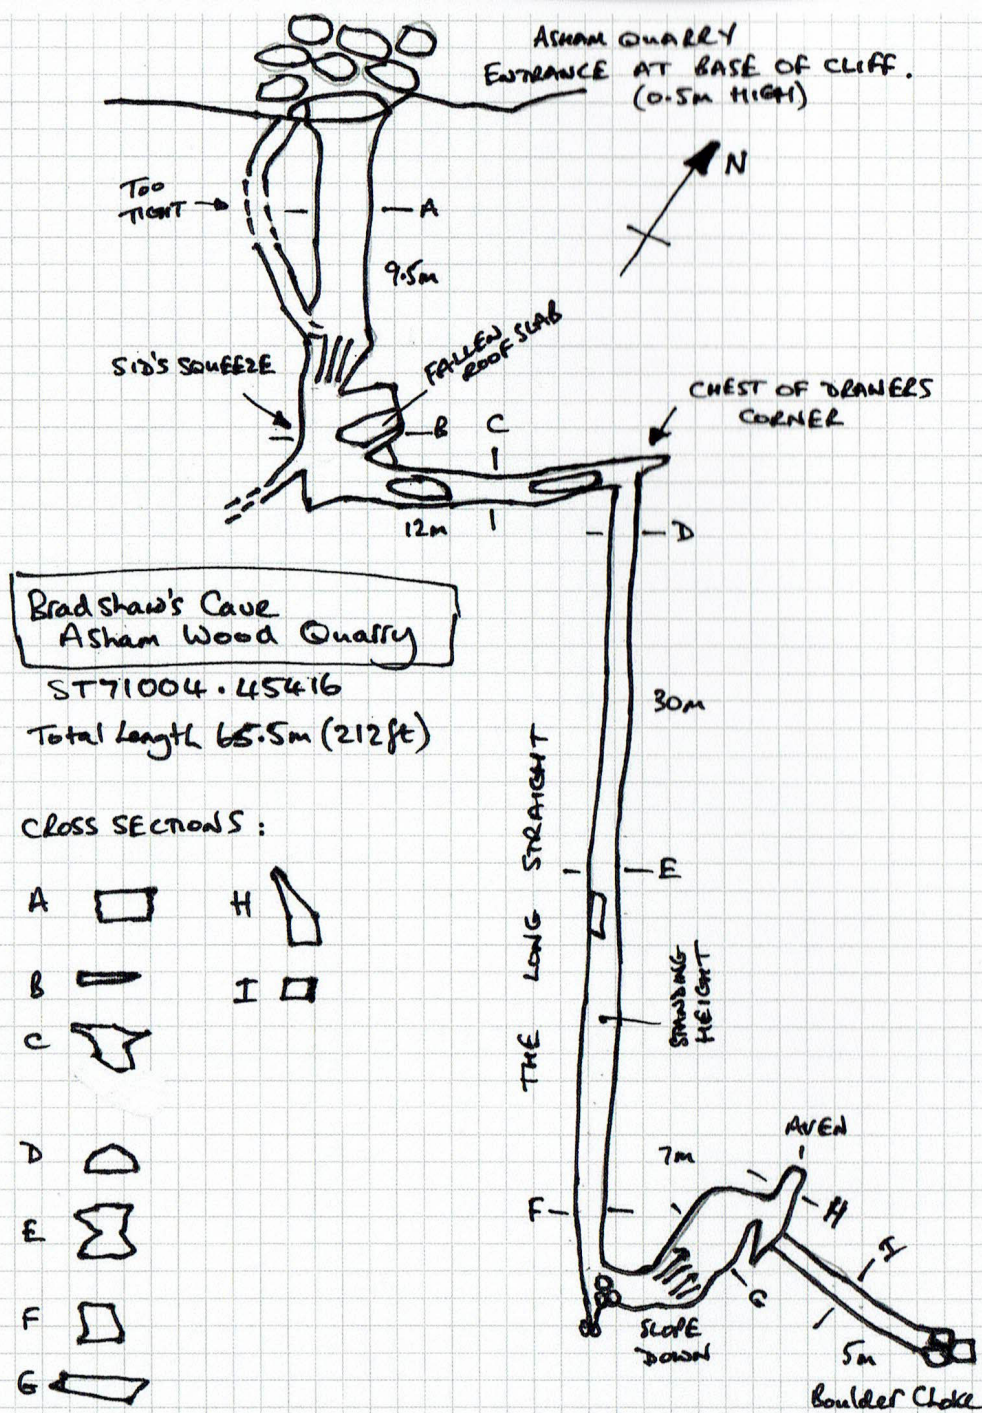 ASHAM QUARRY
ENTRANCE AT BASE OF CLIFF.
(0.5m HIGH)
N
TOO
TIGHT
A
9.5m
SID'S SQUEEZE
FALLEN
ROOF SLAB
CHEST OF DRAWERS
CORNER
B
C
12m
D
Bradshaw's Cave
Asham Wood Quarry
ST71004.45416
Total Length 65.5m (212ft)
30m
THE LONG STRAIGHT
E
STANDING
HEIGHT
CROSS SECTIONS:
A
H
B
I
C
D
E
F
G
AVEN
7m
F
H
I
G
SLOPE
DOWN
5m
Boulder Choke